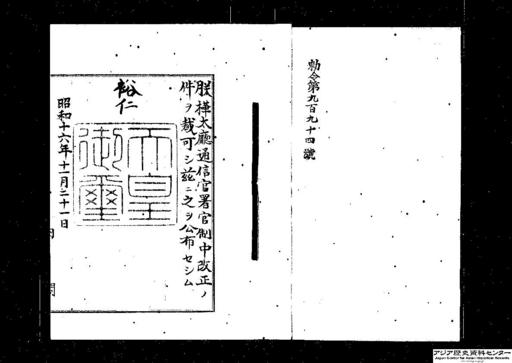 勅令第九百九十四號
朕樺太廳通信官署官制中改正ノ
件ヲ裁可シ茲ニ之ヲ公布セシム
裕仁
天皇
御璽
昭和十六年十一月二十一日
内閣
アジア歴史資料センター
Japan Center for Asian Historical Records